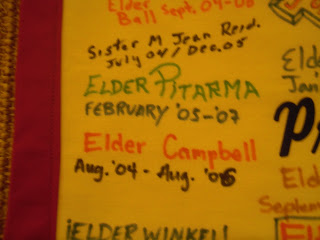 Elder
Ball Sept. 04-06
Sister M Jean Reid.
July 04 / Dec. 05
ELDER PITARMA
FEBRUARY '05-'07
Elder Campbell
Aug. '04 - Aug. '06
¡ELDER WINKEL
Elde
Jan'
Elde
Septem